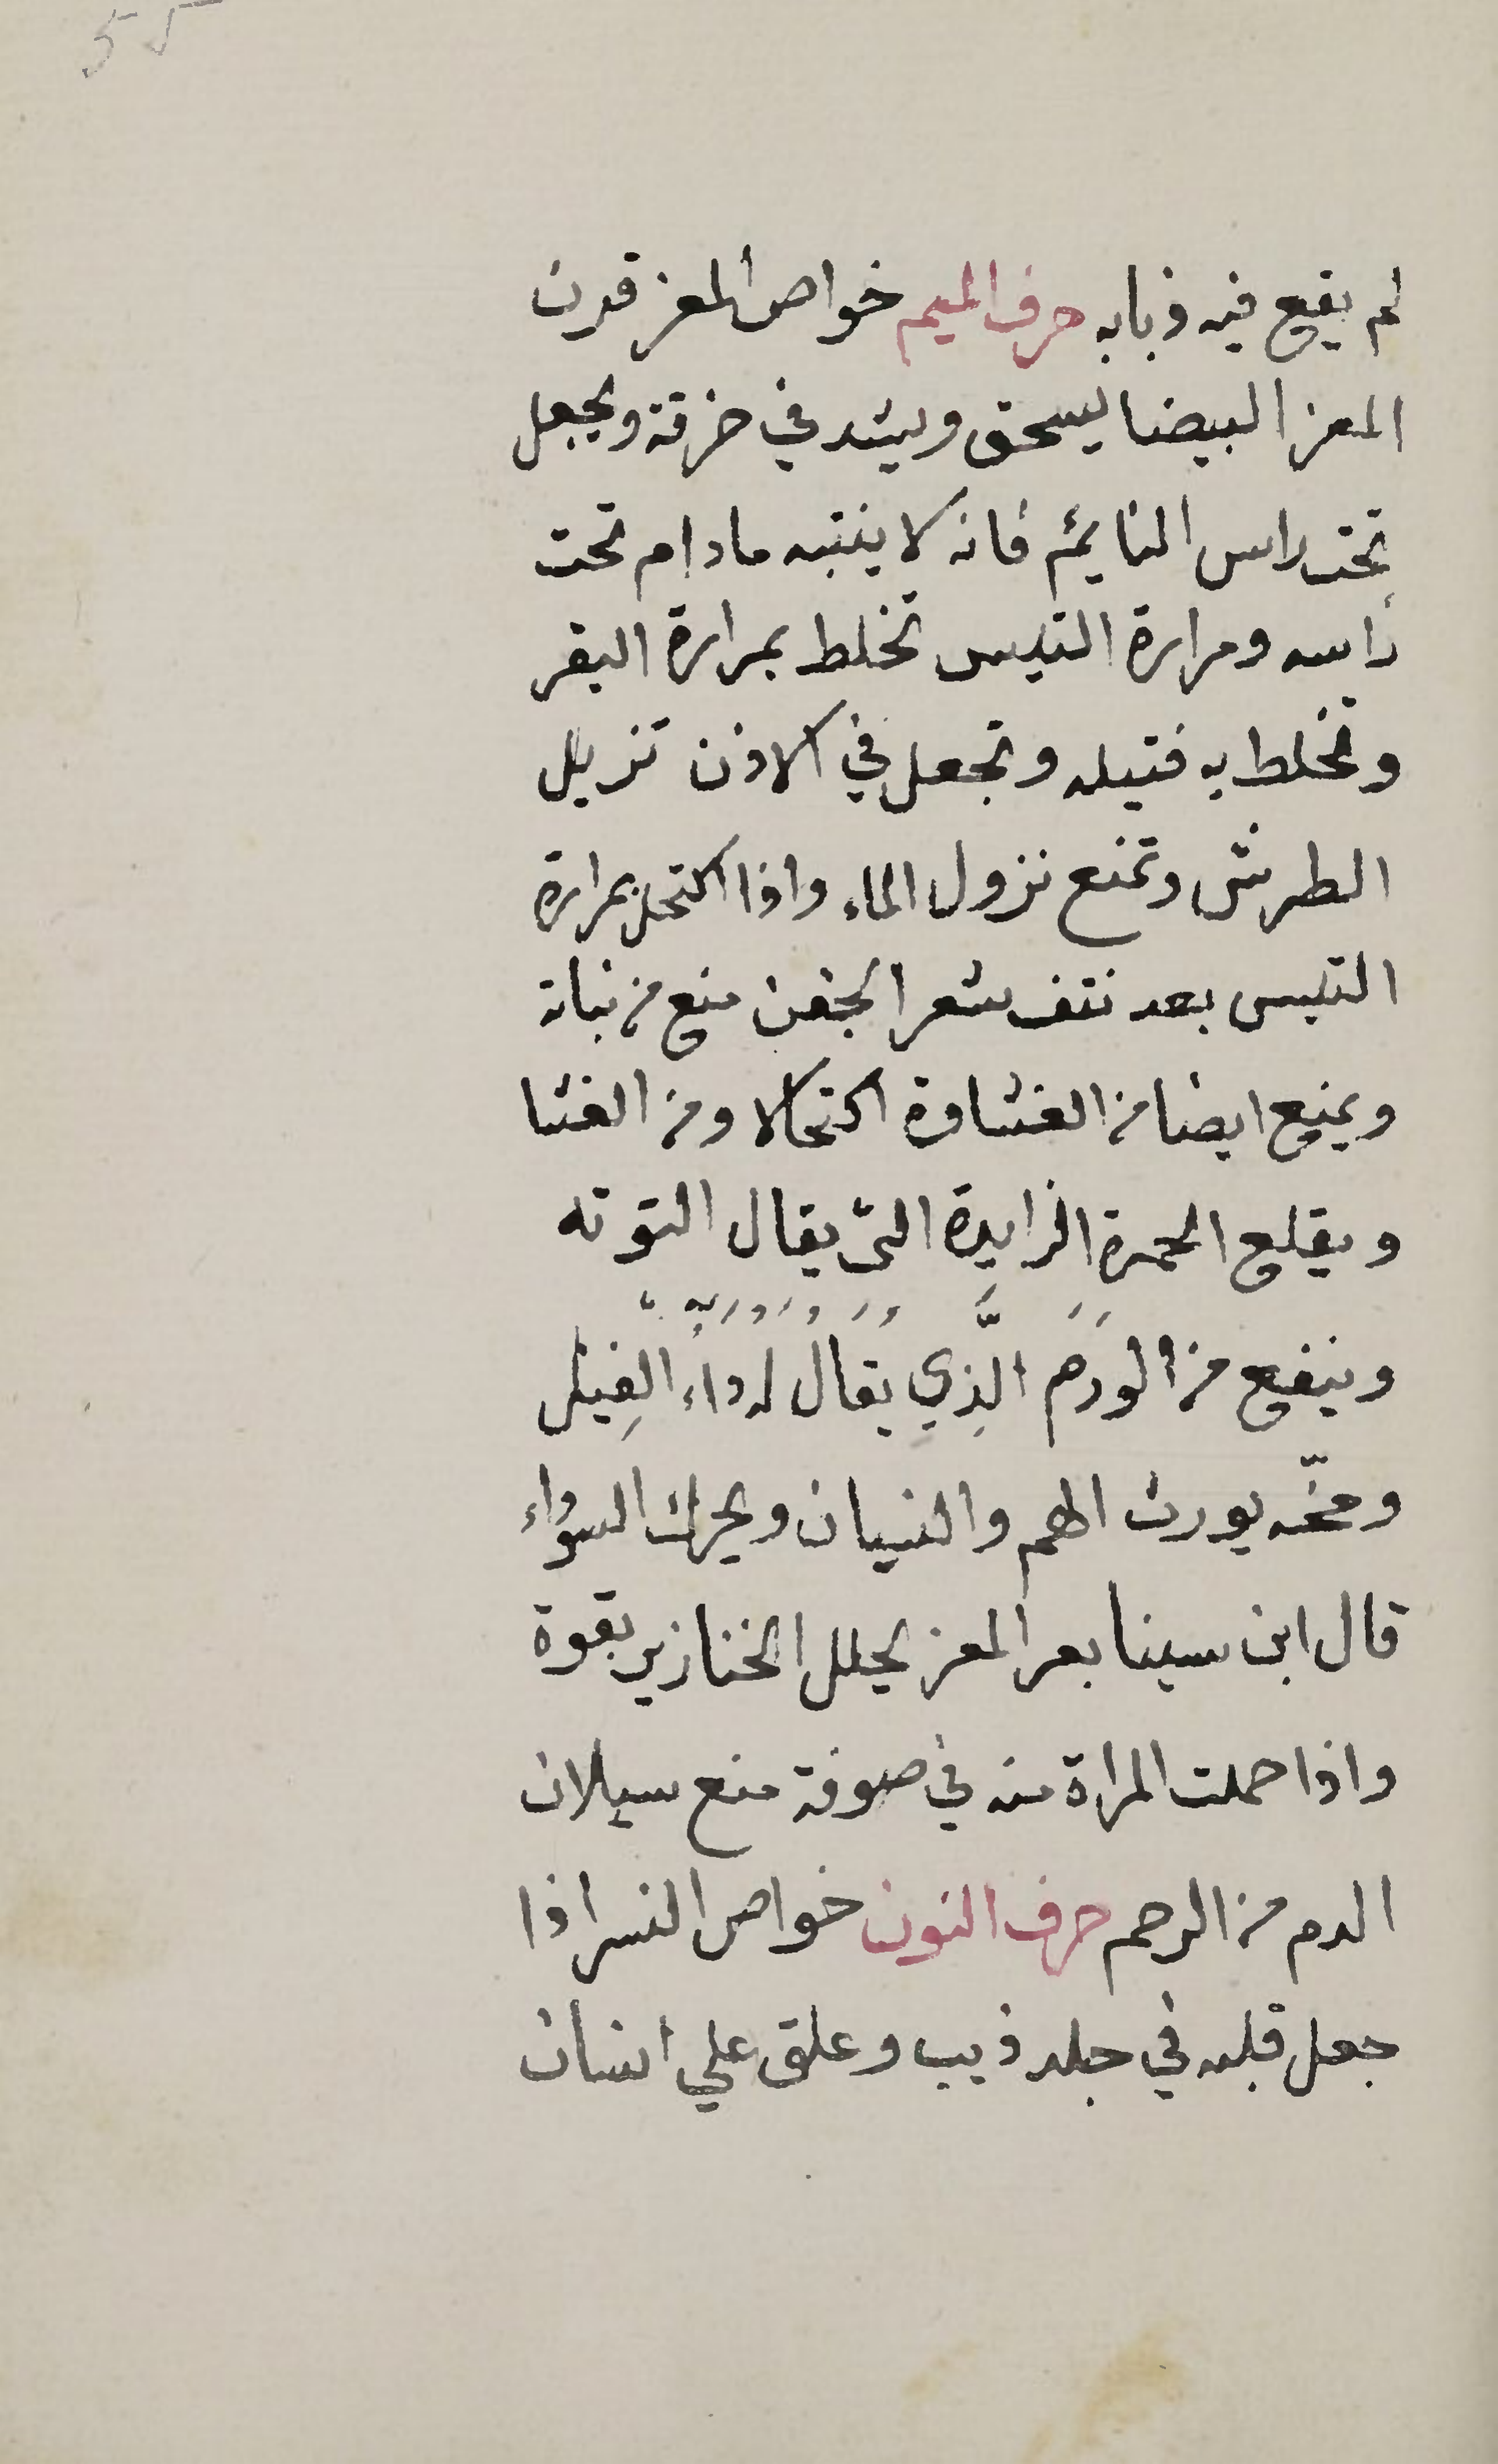 لم يقع فيه ذبابه حرف الميم خواص المعز قرن
المعز البيضا يسحق ويشد في خرقة ويجعل
تحت راس النايم فانه لا ينتبه مادام تحت
رأسه ومرارة التيس تخلط بمرارة البقر
وتخلط به فتيله وتجعل في الاذن تزيل
الطرش وتمنع نزول الماء واذا اكتحل بمرارة
التيس بعد نتف شعر الجفن منع من نباته
ويمنع ايضا من الغشاوة اكتحالا ومن الغشا
ويقلع الحمرة الزايدة التى يقال التوته
وينفع من الورَم الَّذِي يُقَالُ له داءُ الفِيل
ومخّه يورث الهم والنسيان ويحرك السوداء
قال ابن سينا بعر المعز يحلل الخنازير بقوة
واذا حملت المراة منه في صوفة منع سيلان
الدم من الرحم حرف النون خواص النسر اذا
جعل قلبه في جلد ذيب وعلق علي انسان